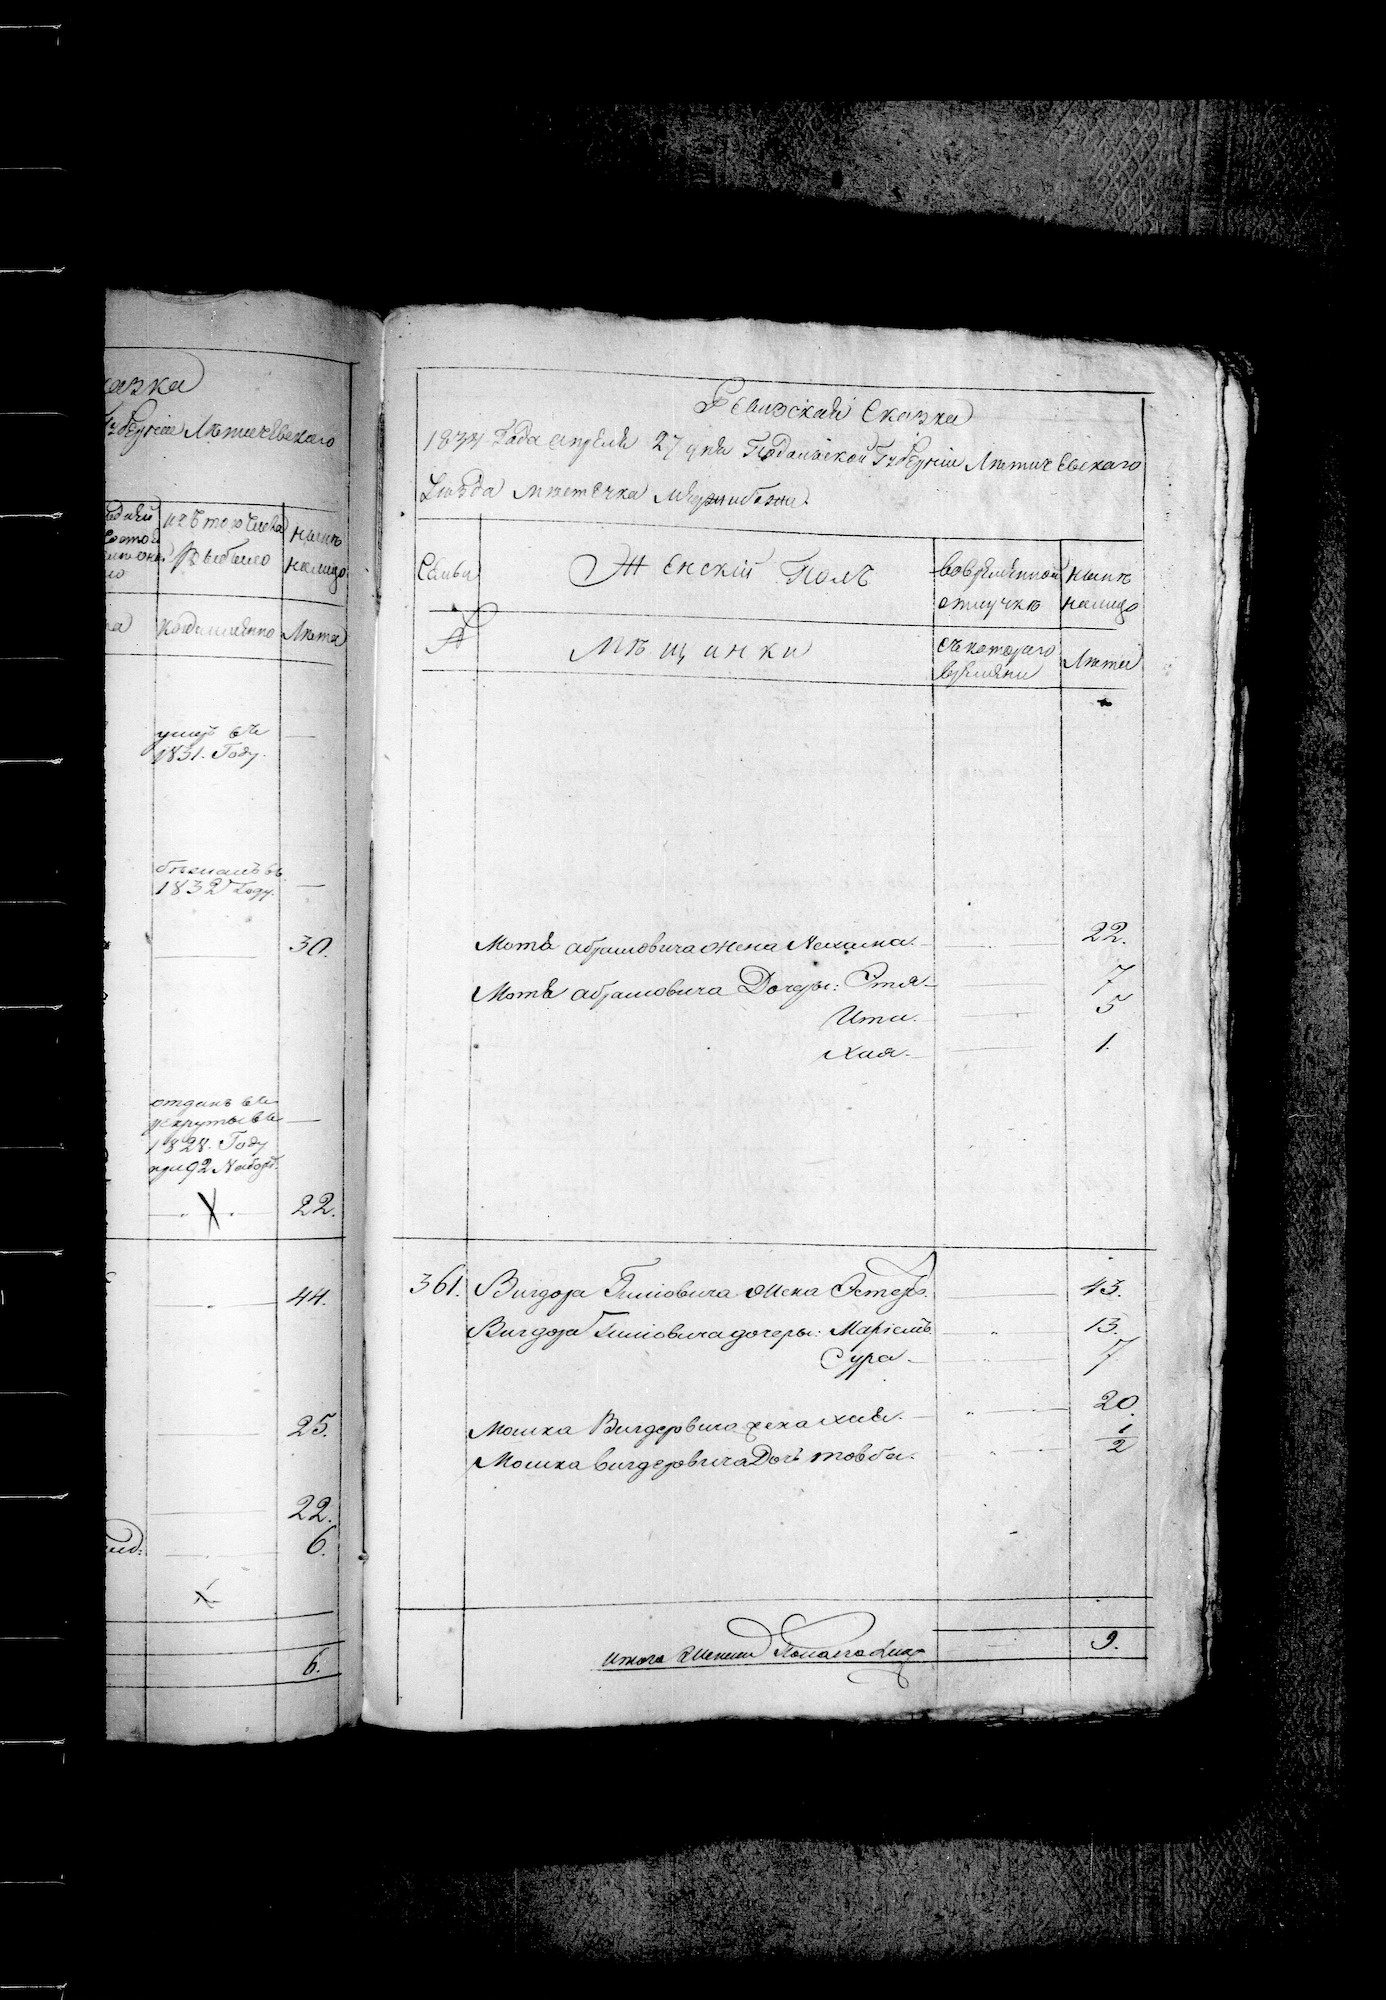 азка
Губерніи Летичевскаго
изъ того числа
выбыло
ныне
налицо
когда именно
Лета
умер въ
1831. Году.
—
бежалъ въ
1832 Году.
—
30.
отданъ въ
рекруты въ
1828. Году
при 92 Наборе
—
22.
44.
25.
22.
6.
6.
Ревизская Сказка
1834 Года апреля 27 дня Подольской Губерніи Летичевскаго
Уезда местечка Меджибожа
Семьи
Женскій Полъ
вовременной
отлучке
ныне
налицо
№
Мещанки
съ котораго
времяни
Лета
Мотя абрамовича жена Нехама. 22.
Мотя абрамовича Дочери: Этя 7
Ита. 5
Хая. 1.
361. Вигдора Гиловича жена Эстеръ. 43.
Вигдора Гиловича дочери: Маріемъ 13.
Сура 7
Мошка Вигдоровича жена Хая. 20.
Мошка Вигдоровича Дочь товба. 1/2
Итого Женска Пола налицо 9.